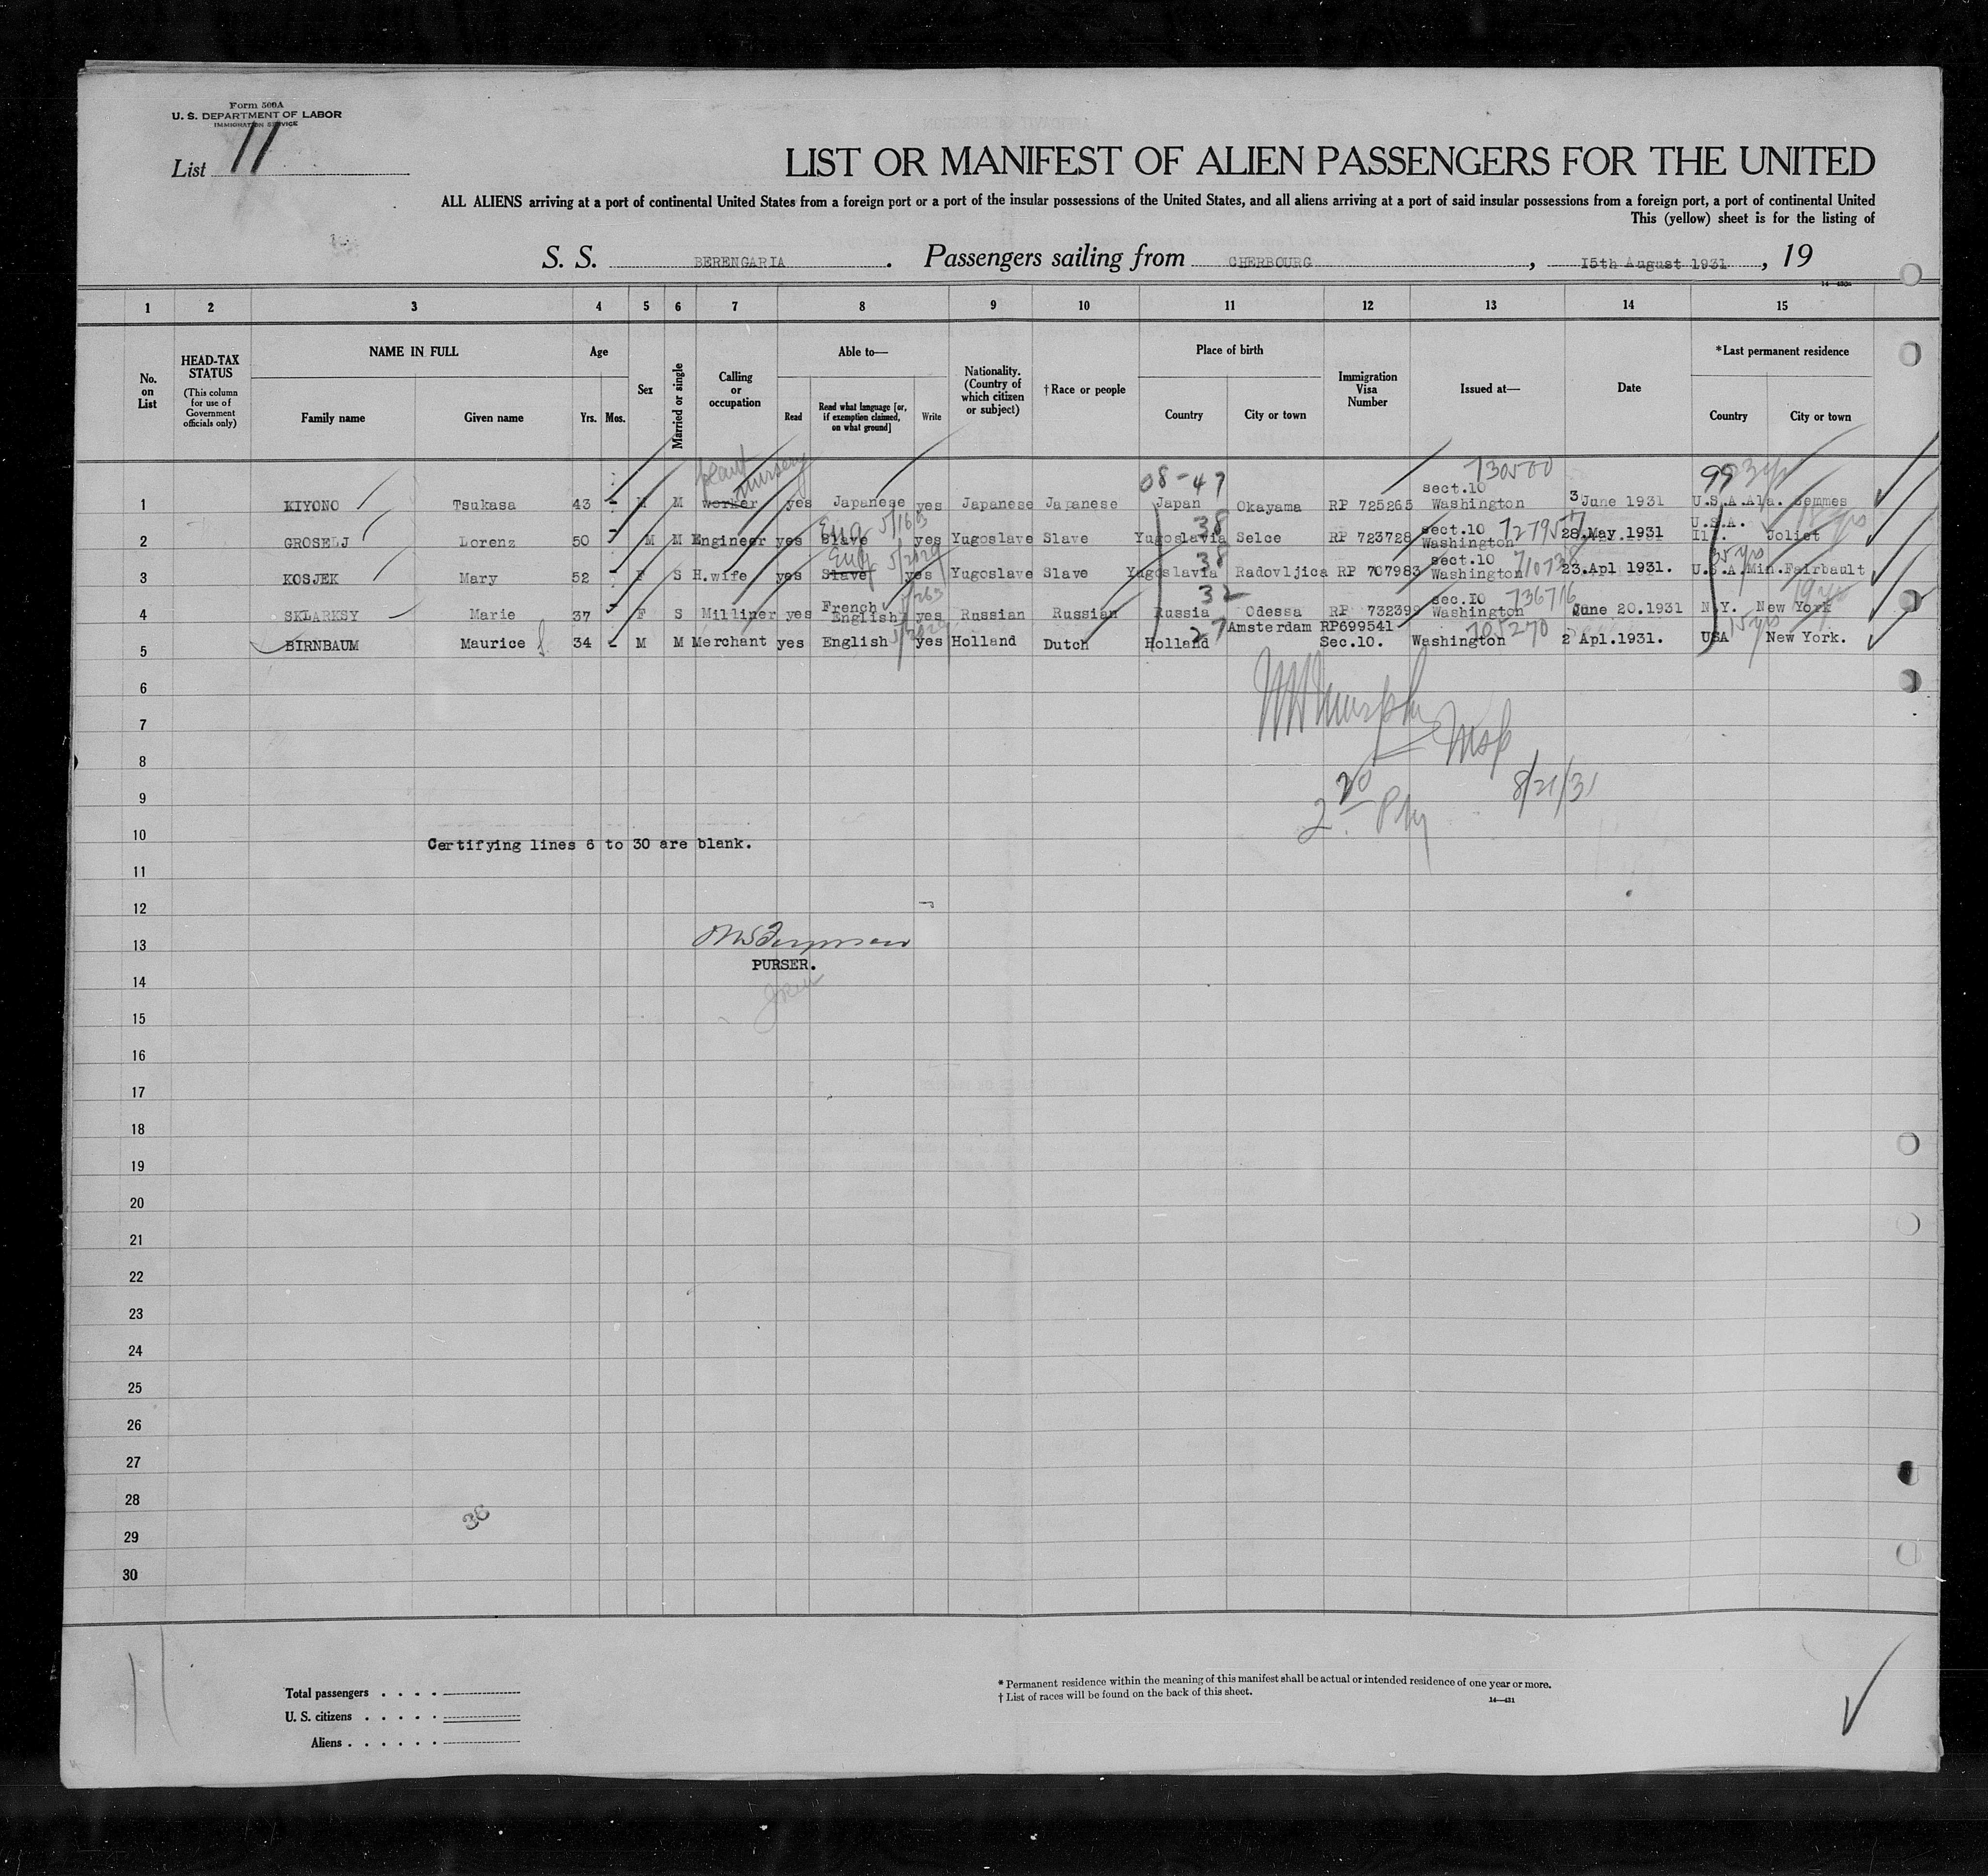 Form 500A
U. S. DEPARTMENT OF LABOR
IMMIGRATION SERVICE
List 11
LIST OR MANIFEST OF ALIEN PASSENGERS FOR THE UNITED
ALL ALIENS arriving at a port of continental United States from a foreign port or a port of the insular possessions of the United States, and all aliens arriving at a port of said insular possessions from a foreign port, a port of continental United
This (yellow) sheet is for the listing of
S. S. BERENGARIA. Passengers sailing from CHERBOURG, 15th August 1931, 19
1 2 3 4 5 6 7 8 9 10 11 12 13 14 15
No. on List
HEAD-TAX STATUS (This column for use of Government officials only)
NAME IN FULL
Family name Given name
Age
Yrs. Mos.
Sex
Married or single
Calling or occupation
Able to—
Read
Read what language [or, if exemption claimed, on what ground]
Write
Nationality. (Country of which citizen or subject)
† Race or people
Place of birth
Country City or town
Immigration Visa Number
Issued at—
Date
*Last permanent residence
Country City or town
plant nursery 08-47 730500 99 3 yrs
1 KIYONO Tsukasa 43 - M M worker yes Japanese yes Japanese Japanese Japan Okayama RP 725265 sect.10 Washington 3 June 1931 U.S.A. Ala. Semmes
Eng 38
2 GROSELJ Lorenz 50 M M Engineer yes Slave yes Yugoslave Slave Yugoslavia Selce RP 723728 sect.10 Washington 28.May.1931 U.S.A. Ill. Joliet
Eng 38 35 yrs
3 KOSJEK Mary 52 F S H.wife yes Slave yes Yugoslave Slave Yugoslavia Radovljica RP 707983 sect.10 Washington 23.Apl 1931. U.S.A. Min. Fairbault
32 736716 19 yrs
4 SKLARKSY Marie 37 F S Milliner yes French English yes Russian Russian Russia Odessa RP 732399 sec.10 Washington June 20.1931 N.Y. New York
27 705270 15 yrs
5 BIRNBAUM Maurice 34 - M M Merchant yes English yes Holland Dutch Holland Amsterdam RP699541 Sec.10. Washington 2 Apl.1931. USA New York.
6
7
8
9
8/21/31
10
Certifying lines 6 to 30 are blank.
11
12
13
PURSER.
14
15
16
17
18
19
20
21
22
23
24
25
26
27
28
36
29
30
Total passengers . . . .
U. S. citizens . . . . .
Aliens . . . . . .
* Permanent residence within the meaning of this manifest shall be actual or intended residence of one year or more.
† List of races will be found on the back of this sheet.
14—431